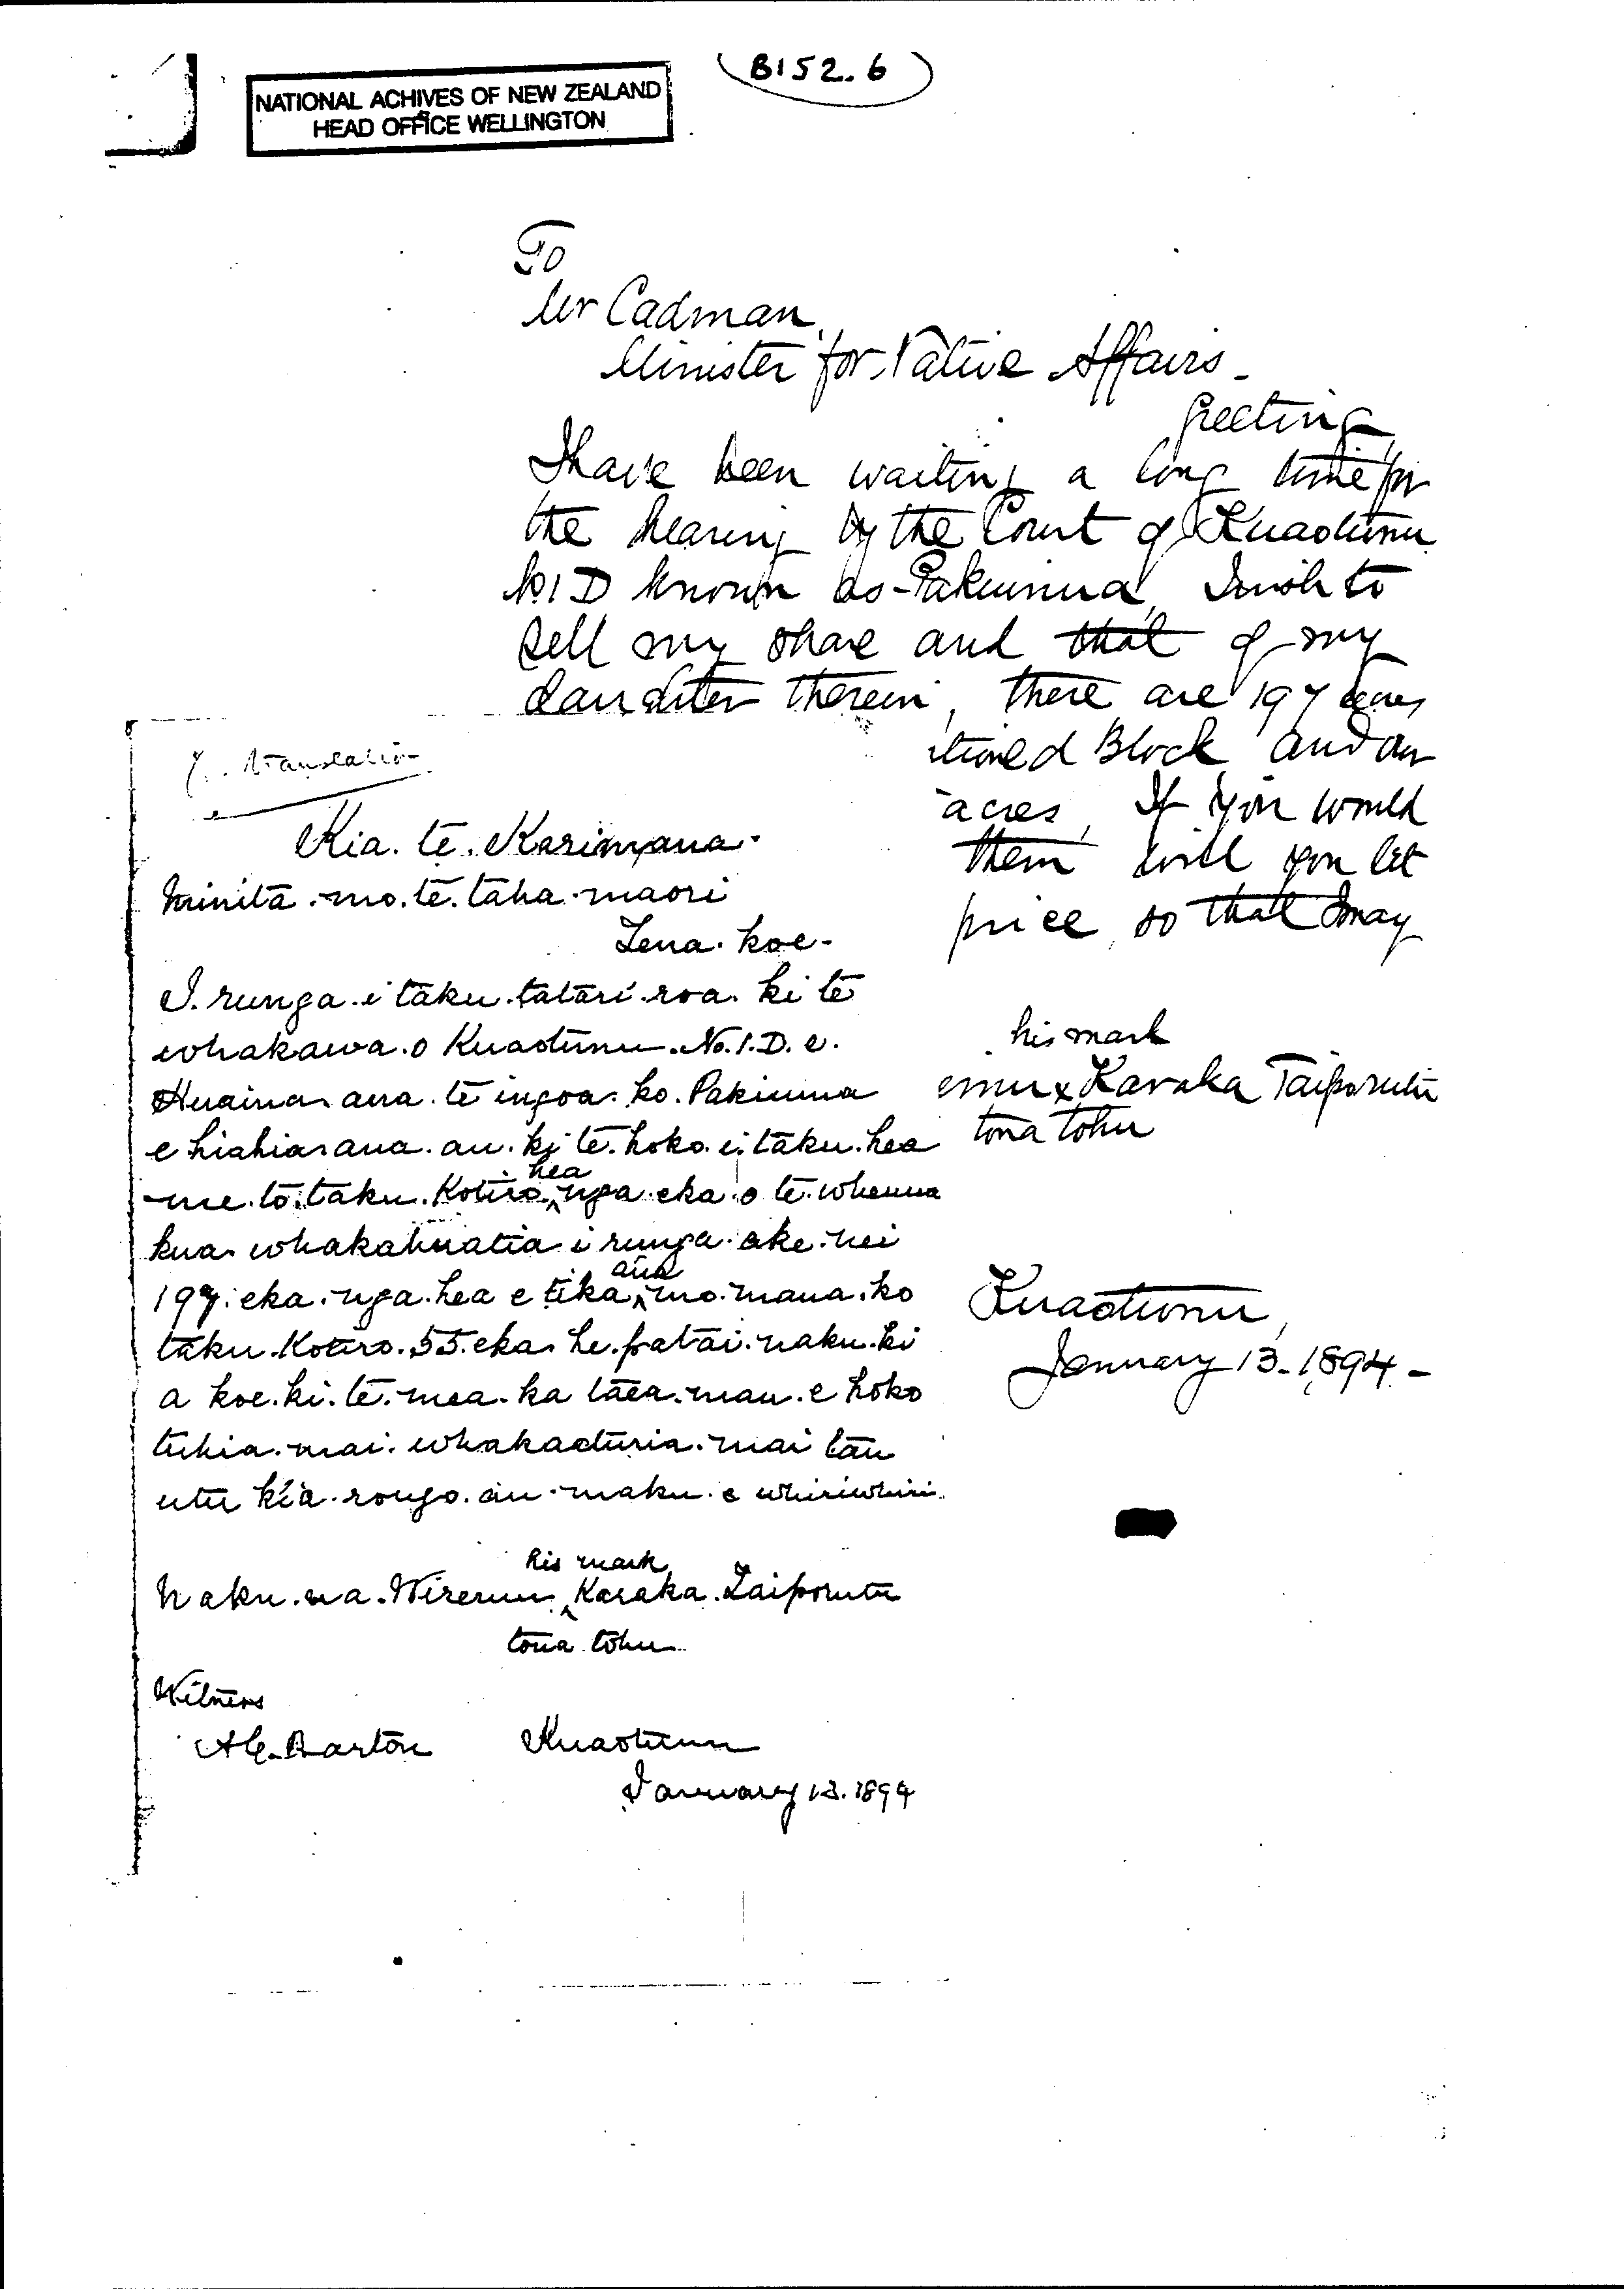 B152.6
NATIONAL ACHIVES OF NEW ZEALAND
HEAD OFFICE WELLINGTON
To
Mr Cadman,
Minister for Native Affairs -
Greeting
I have been waiting a long time for
the hearing by the Court of Kuaotunu
No. 1 D known as Pakiunua, I wish to
sell my share and that of my
daughter therein, there are 197 acres
tioned Block and our
acres, If you would
them will you let
price, so that I may
his mark
emu x Karaka Taiporutu
tona tohu
Kuaotunu,
January 13 - 1894 -
translation
Kia. te. Karimana.
Minita. mo. te. taha. maori
Tena. koe -
I. runga. i taku. tatari. roa. ki te
whakawa. o Kuaotunu. No. 1. D. e.
Huaina. ana. te ingoa. ko. Pakiunua
e hiahia. ana. au. ki te. hoko. i. taku. hea
me. to. taku. Kotiro. hea nga. eka. o te. whenua
kua. whakahuatia. i runga. ake. nei
197. eka. nga. hea e tika ana mo. maua. ko
taku. Kotiro. 55. eka. he. patai. naku. ki
a koe. ki. te. mea. ka taea. mau. e hoko
tuhia. mai. whakaaturia. mai tau
utu kia. rongo. au. maku. e whiriwhiri.
his mark
Naku. na. Wiremu ^ Karaka. Taiporutu
tona tohu
Witness
Barton Kuaotunu
January 13. 1894